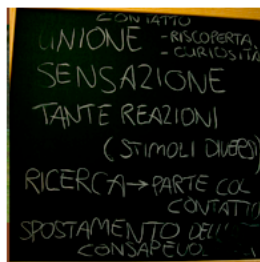 CONTATTO
UNIONE - RISCOPERTA
- CURIOSITÀ
SENSAZIONE
TANTE REAZIONI
(STIMOLI DIVERSI)
RICERCA → PARTE COL
CONTATTO
SPOSTAMENTO